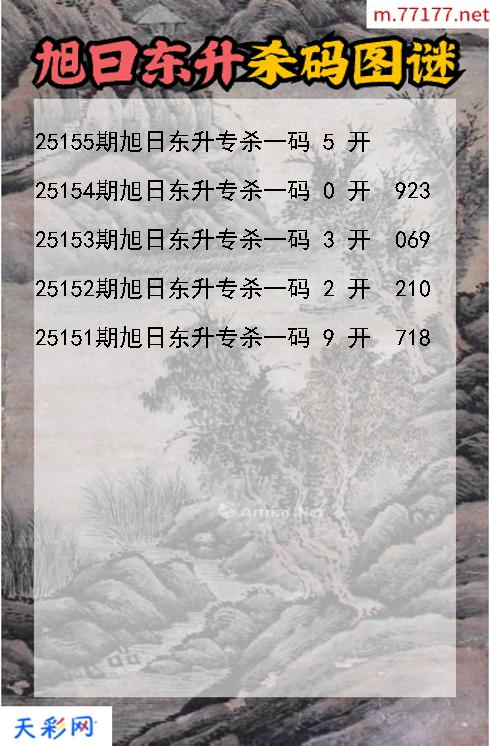 m.77177.net
旭日东升杀码图谜
25155期旭日东升专杀一码 5 开
25154期旭日东升专杀一码 0 开 923
25153期旭日东升专杀一码 3 开 069
25152期旭日东升专杀一码 2 开 210
25151期旭日东升专杀一码 9 开 718
天彩网